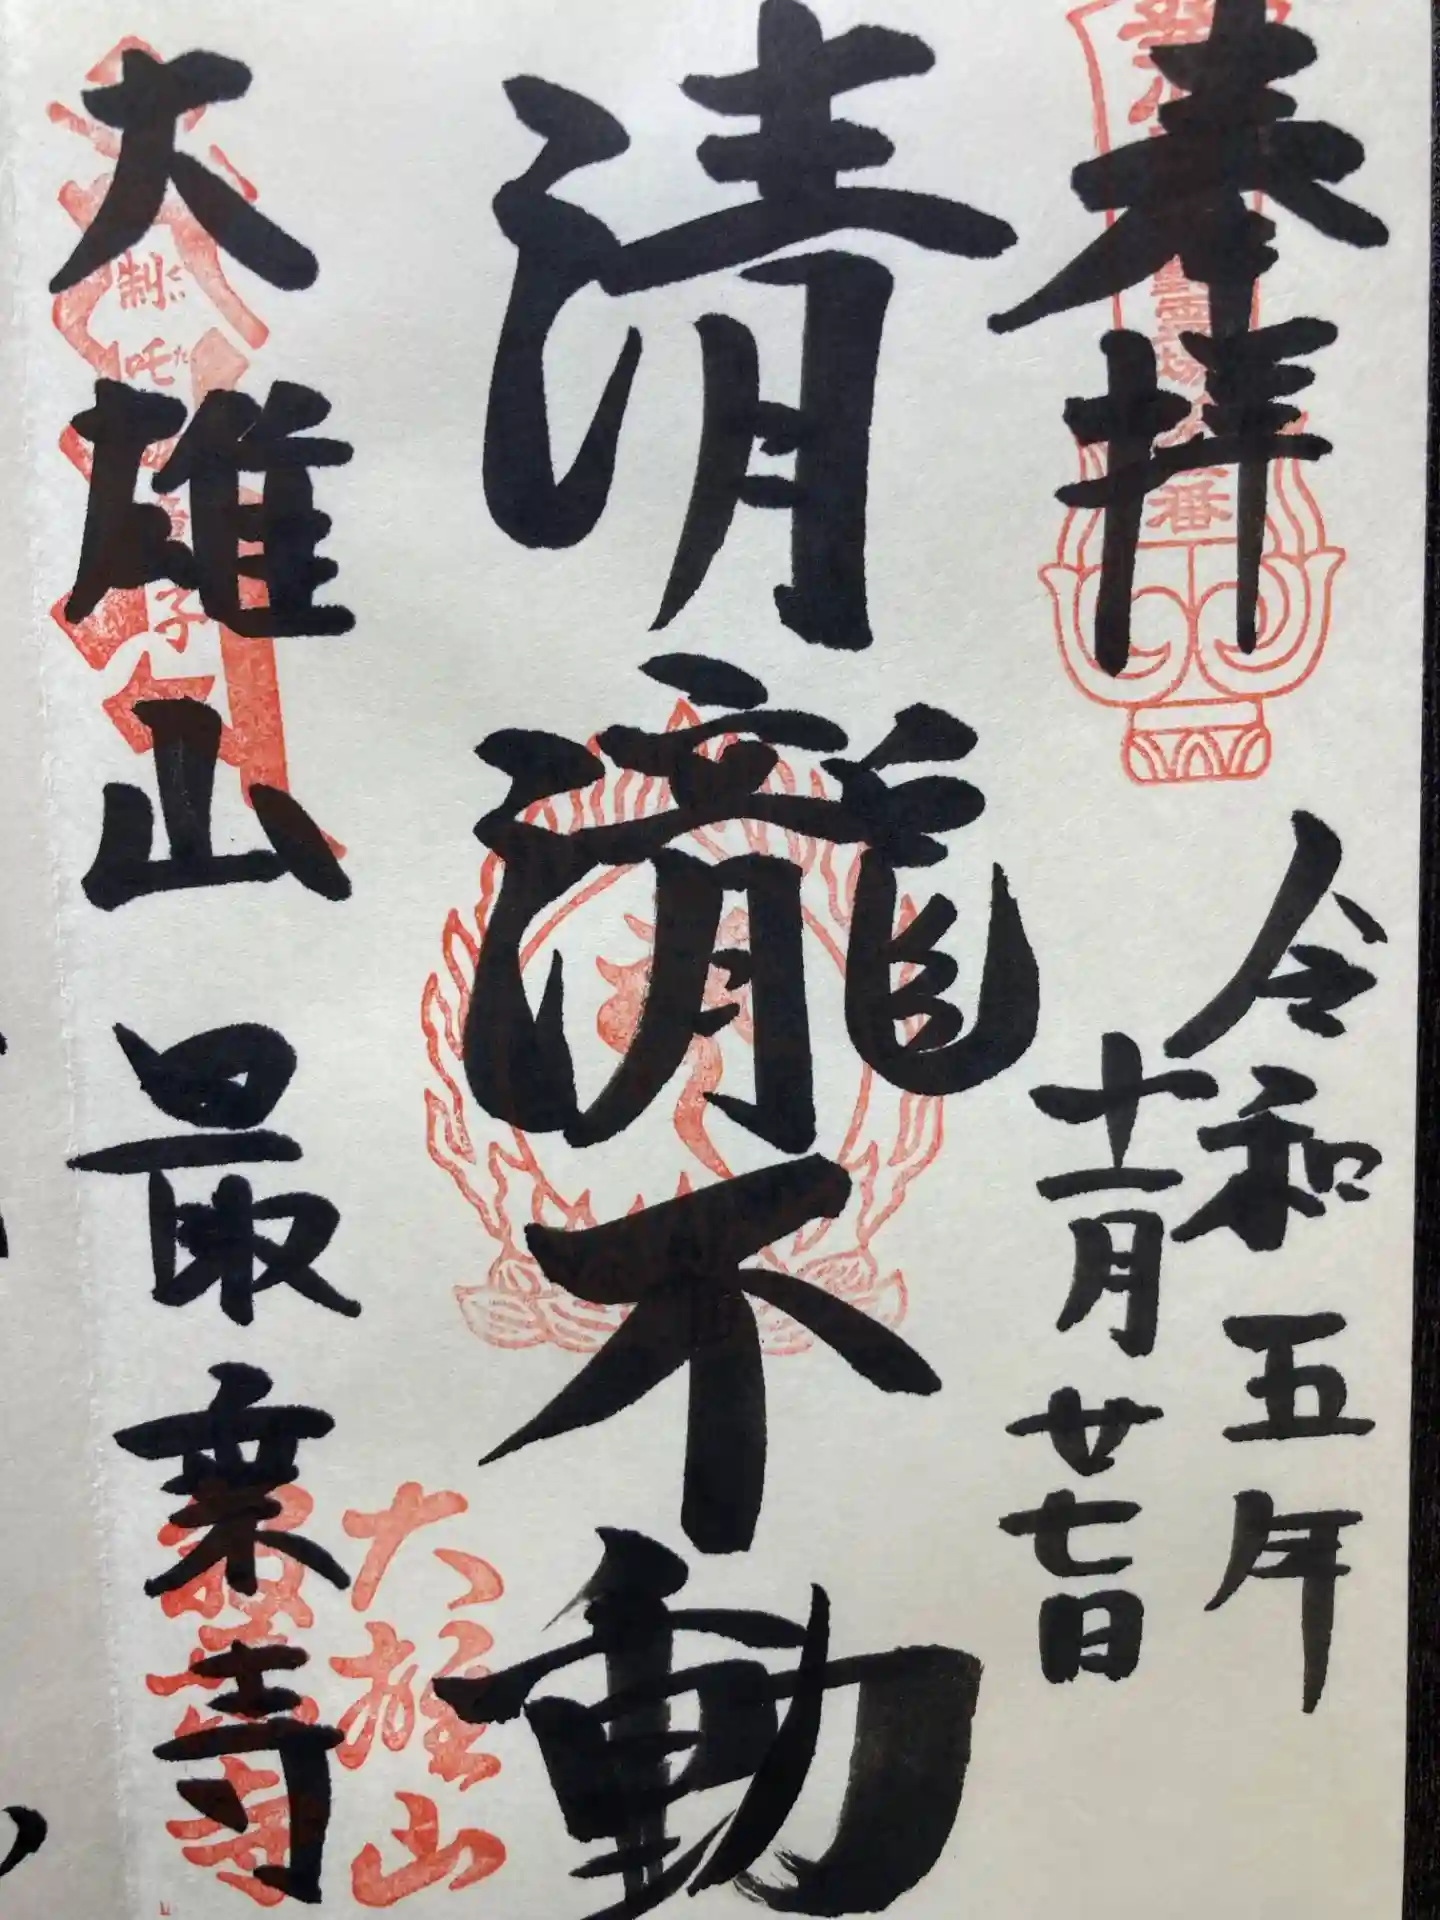 奉拝
令和五年
十二月廿七日
清瀧不動
大雄山最乗寺
番
制吒
くた
子
大雄山
最乗寺